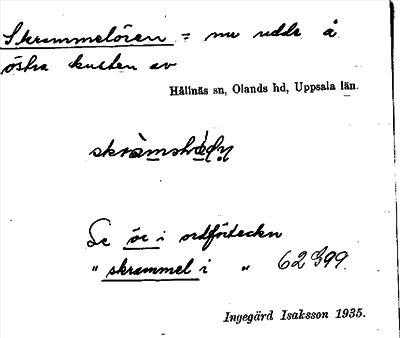 Skrammelören = nu udde å
östra kusten av
Hållnäs sn, Olands hd, Uppsala län.
Se ör i ordförteckn
" skrammel i " 62399.
Ingegärd Isaksson 1935.